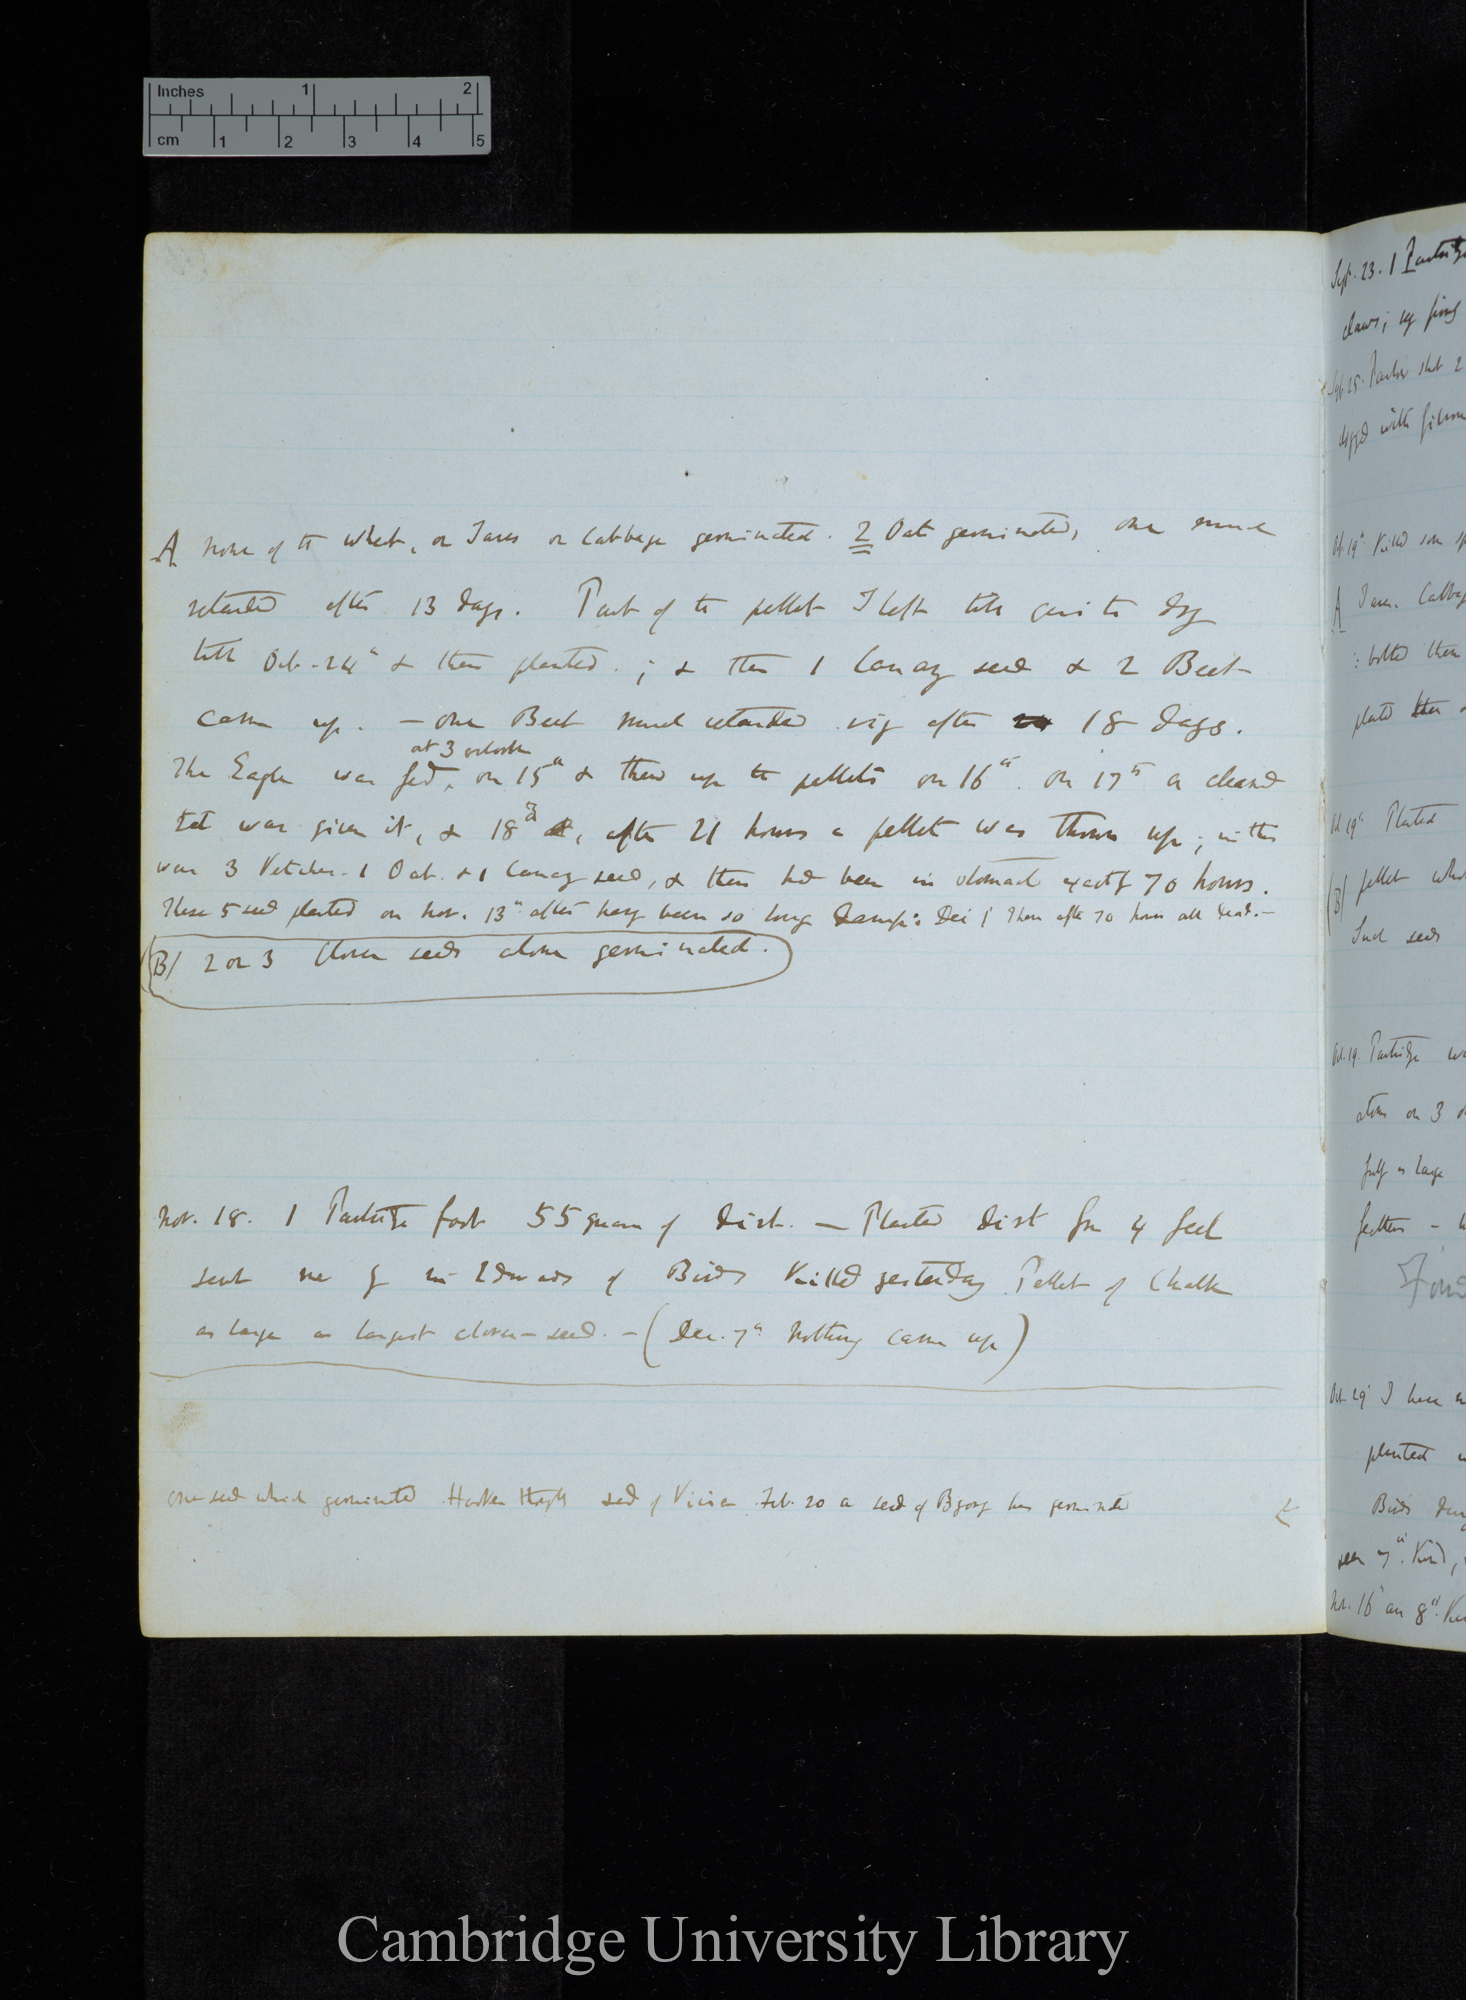 Inches 1 2
cm 1 2 3 4 5
A None of the Wheat, or Tares or Cabbage germinated. 2 Oats germinated, one much
retarded after 13 days. Part of the pellet I left till quite dry
till Oct. 24th & then planted. ; & then 1 Canary seed & 2 Beet
came up. — one Beet much retarded viz after 18 days.
at 3 oclock
The Eagle was fed, on 15th & threw up the pellets on 16th. on 17th a cleaned
was given it, & 18th, after 21 hours a pellet was thrown up; in this
was 3 Vetches. 1 Oat. & 1 Canary seed, & these had been in stomach exactly 70 hours.
These 5 seed planted on Nov. 13th after having been so long damp: Dec 1 These after 70 hours all dead.—
B/ 2 or 3 Clover seeds alone germinated.
Nov. 18. 1 Partridge foot 55 grains of dirt. — Planted dirt from 4 feet
sent me by Mr of Birds killed yesterday Pellet of Chalk
as large as largest clover-seed. — (Dec. 7th Nothing came up)
one seed which germinated Hooker thought seed of Vicia Feb. 20 a seed of has germinated
Sept. 23. 1
claws;
Sept. 25. shot 2
with
Oct. 19th Killed some
A Tares. Cabbage
planted
Oct 19th Planted
(B) pellet
Such seeds
Oct. 19. Partridge
on 3
fully as large
feathers —
Oct 29 I have
planted
Birds
seen 7th. Kind,
Nov. 16 an 8th.
Cambridge University Library